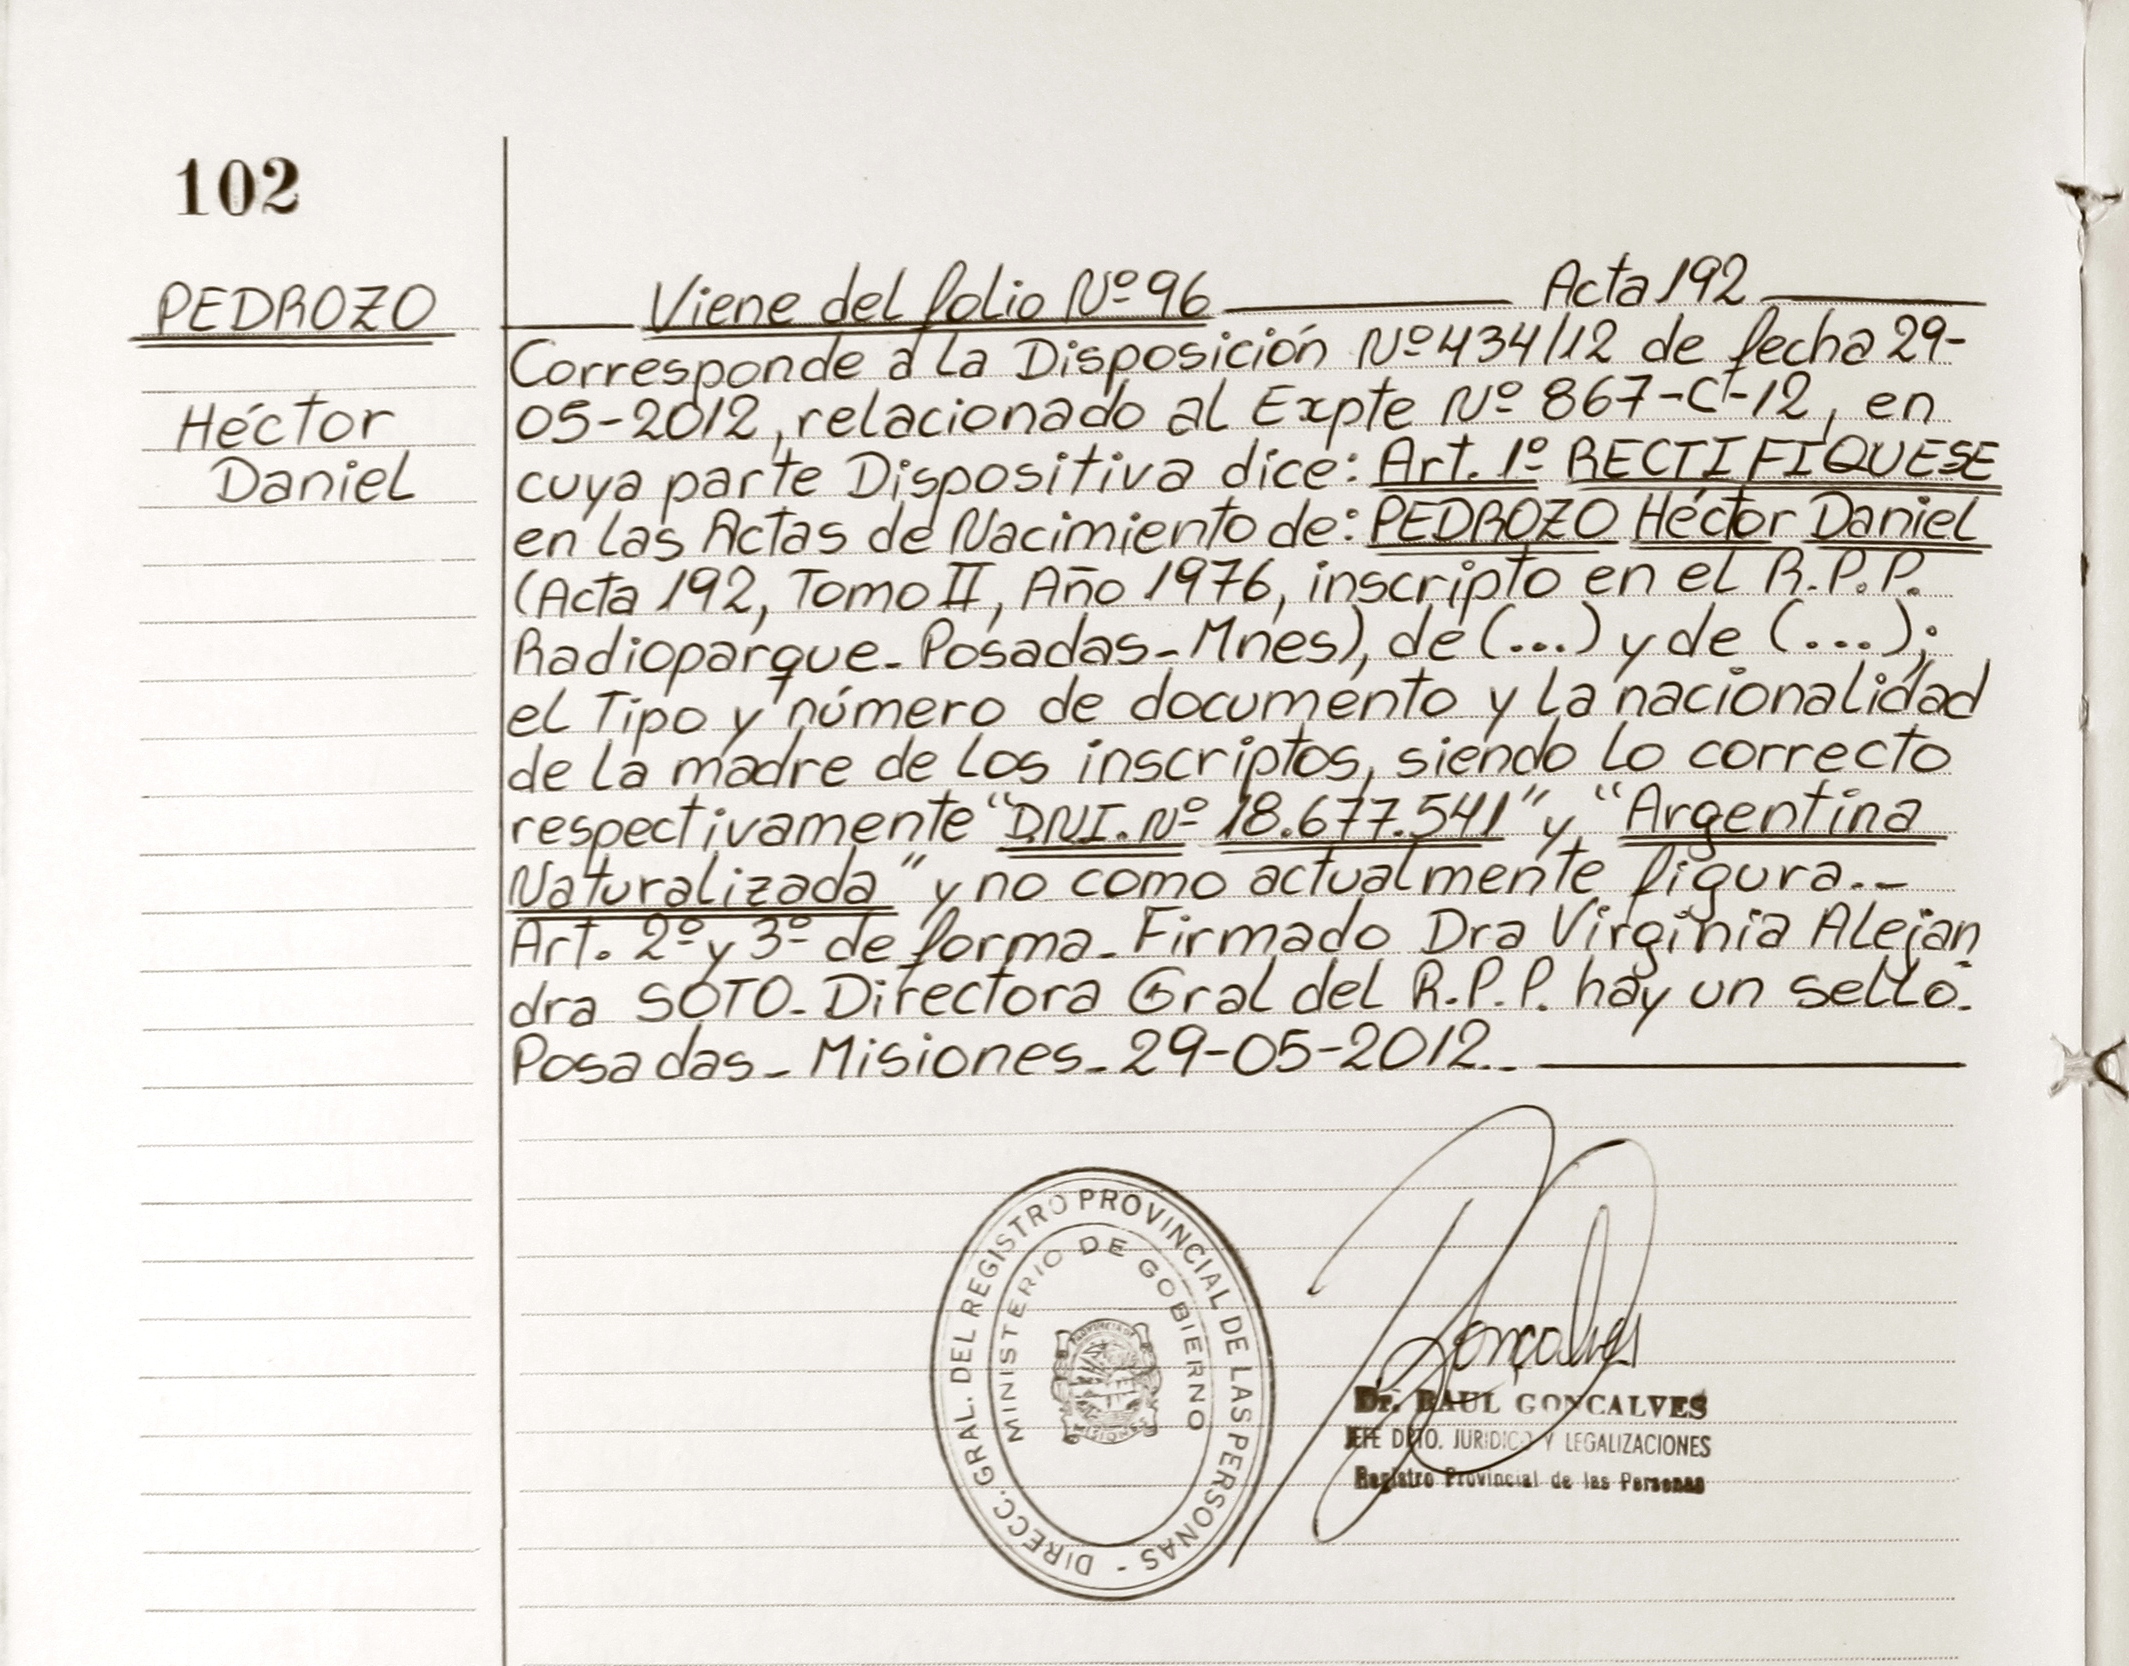 102
PEDROZO
Héctor
Daniel
Viene del folio Nº 96 Acta 192
Corresponde a la Disposición Nº 434/12 de fecha 29-
05-2012, relacionado al Expte Nº 867-C-12, en
cuya parte Dispositiva dice: Art. 1º RECTIFIQUESE
en las Actas de Nacimiento de: PEDROZO Héctor Daniel
(Acta 192, Tomo II, Año 1976, inscripto en el R.P.P.
Radioparque - Posadas - Mnes), de (...) y de (...);
el Tipo y número de documento y la nacionalidad
de la madre de los inscriptos, siendo lo correcto
respectivamente "DNI. Nº 18.677.541" y "Argentina
Naturalizada" y no como actualmente figura.-
Art. 2º y 3º de forma - Firmado Dra Virginia Alejan
dra SOTO - Directora Gral del R.P.P. hay un sello.
Posadas - Misiones - 29-05-2012.-
DIRECC. GRAL. DEL REGISTRO PROVINCIAL DE LAS PERSONAS -
MINISTERIO DE GOBIERNO
PROVINCIA DE
MISIONES
Gonçalves
Dr. RAUL GONCALVES
JEFE DPTO. JURIDICO Y LEGALIZACIONES
Registro Provincial de las Personas